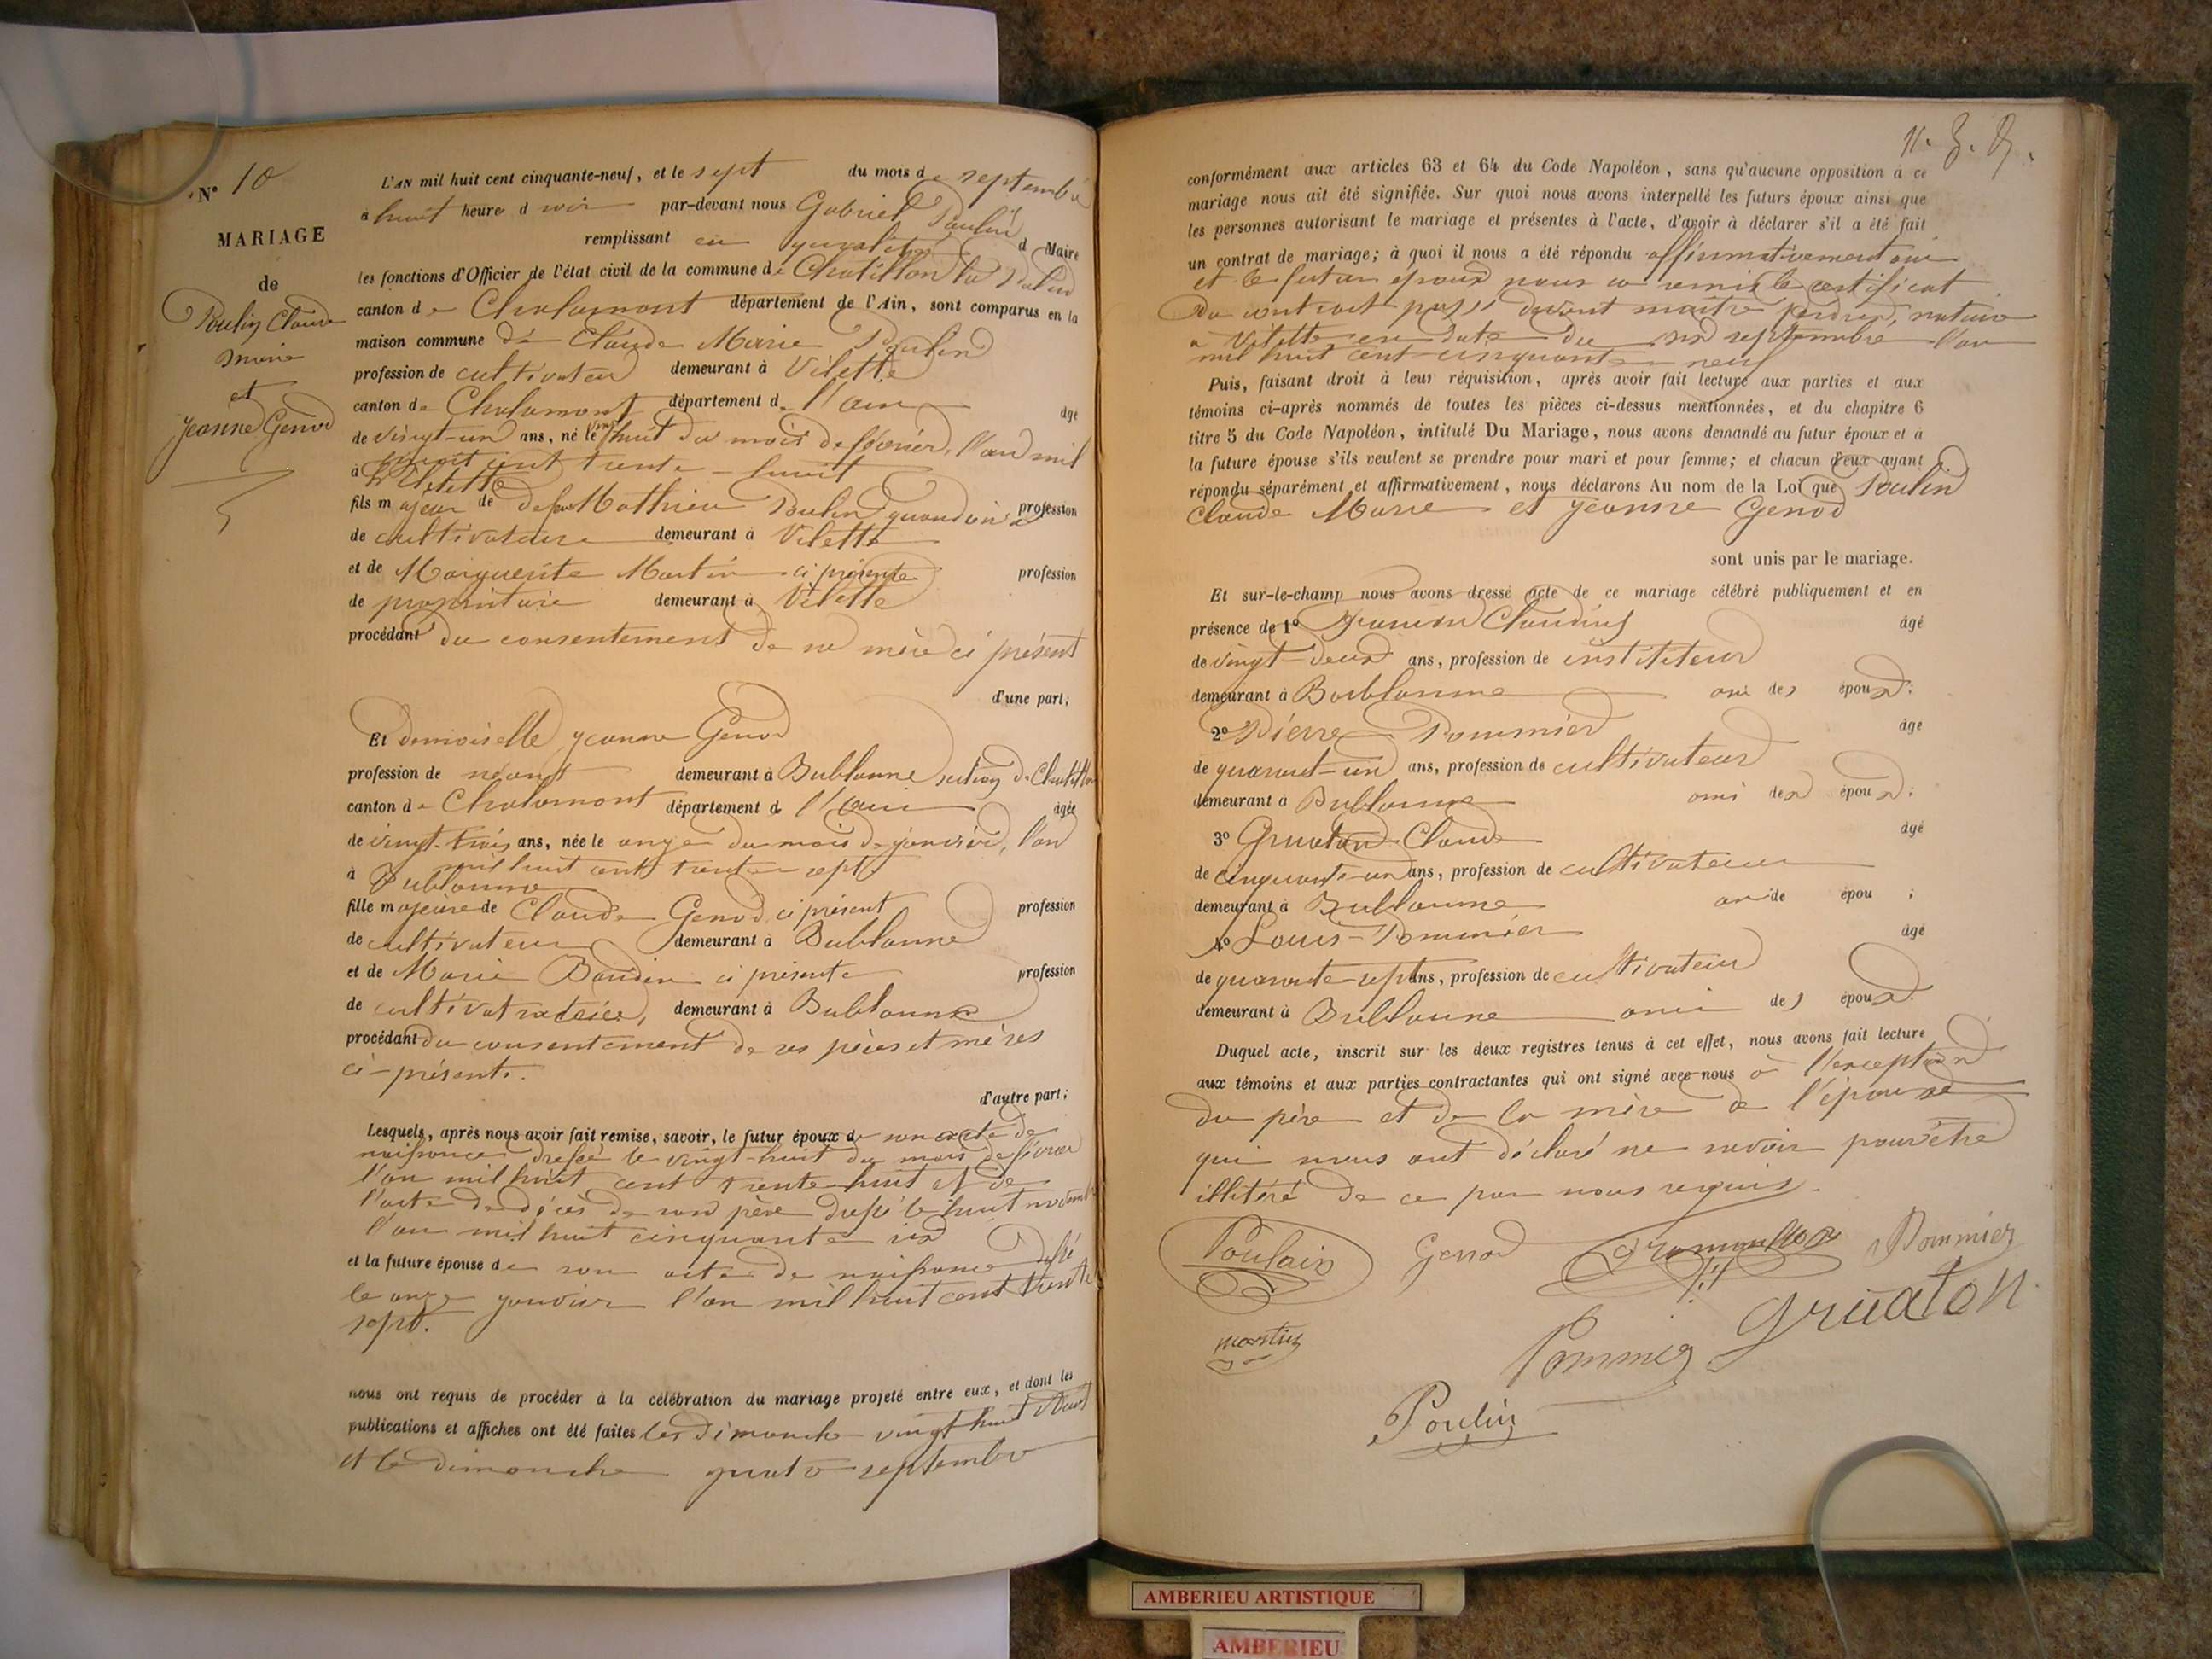 N° 10
MARIAGE
de
Poulin Claude
marie
et
jeanne Genod
L'AN mil huit cent cinquante-neuf, et le sept du mois de septembre
à huit heure d soir par-devant nous Gabriel Poulin
remplissant en qualité d Maire
les fonctions d'Officier de l'état civil de la commune de Chatillon la Palud
canton de Chalamont département de l'Ain, sont comparus en la
maison commune de Claude Marie Poulin
profession de cultivateur demeurant à Vilette
canton de Chalamont département d. l'ain âgé
de vingt-un ans, né le vingt huit du mois de février, l'an mil
huit cent trente-huit
à Vilette
fils majeur de defunt Mathieu Poulin quand vivait profession
de cultivateur demeurant à Vilette
et de Marguerite Martin ci présente profession
de propriétaire demeurant à Vilette
procédant du consentement de sa mère ci présent
d'une part;
Et demoiselle jeanne Genod
profession de néant demeurant à Bublanne section de Chatillon
canton de Chalamont département d l'ain âgée
de vingt-trois ans, née le onze du mois de janvier, l'an
mil huit cent trente sept
à Bublanne
fille majeure de Claude Genod ci présent profession
de cultivateur demeurant à Bublanne
et de Marie Baudin ci présente profession
de cultivatrice, demeurant à Bublanne
procédant du consentement de ses pères et mères
ci-présents.
d'autre part;
Lesquels, après nous avoir fait remise, savoir, le futur époux de son acte de
naissance dressé le vingt-huit du mois de février
l'an mil huit cent trente huit et de
l'acte de décès de son père dressé le huit novembre
l'an mil huit cinquante six
et la future épouse de son acte de naissance dressé
le onze janvier l'an mil huit cent trente
sept.
nous ont requis de procéder à la célébration du mariage projeté entre eux, et dont les
publications et affiches ont été faites les dimanche vingt huit Aout
et le dimanche quatre septembre
conformément aux articles 63 et 64 du Code Napoléon, sans qu'aucune opposition à ce
mariage nous ait été signifiée. Sur quoi nous avons interpellé les futurs époux ainsi que
les personnes autorisant le mariage et présentes à l'acte, d'avoir à déclarer s'il a été fait
un contrat de mariage; à quoi il nous a été répondu affirmativement oui
et le futur époux nous a remis le certificat
du contrat passé devant maitre notaire
a Vilette en date du six septembre l'an
mil huit cent cinquante neuf
Puis, faisant droit à leur réquisition, après avoir fait lecture aux parties et aux
témoins ci-après nommés de toutes les pièces ci-dessus mentionnées, et du chapitre 6
titre 5 du Code Napoléon, intitulé Du Mariage, nous avons demandé au futur époux et à
la future épouse s'ils veulent se prendre pour mari et pour femme; et chacun d'eux ayant
répondu séparément et affirmativement, nous déclarons Au nom de la Loi que Poulin
Claude Marie et jeanne Genod
sont unis par le mariage.
Et sur-le-champ nous avons dressé acte de ce mariage célébré publiquement et en
présence de 1° Claudius âgé
de vingt-deux ans, profession de instititeur
demeurant à Bublanne ami des époux.
2° Pierre Pommier âgé
de quarant-un ans, profession de cultivateur
demeurant à Bublanne ami des époux;
3° Gruaton Claude âgé
de cinquante-un ans, profession de cultivateur
demeurant à Bublanne ami de épou ;
4° Louis Pommier âgé
de quarante-sept ans, profession de cultivateur
demeurant à Bublanne ami des époux.
Duquel acte, inscrit sur les deux registres tenus à cet effet, nous avons fait lecture
aux témoins et aux parties contractantes qui ont signé avec nous à l'exception
du père et de la mère de l'épouse
qui nous ont déclaré ne savoir pour être
illitéré de ce par nous requis.
Poulain Genod Pommier
martin Pommier gruaton
Poulin
AMBERIEU ARTISTIQUE
AMBERIEU